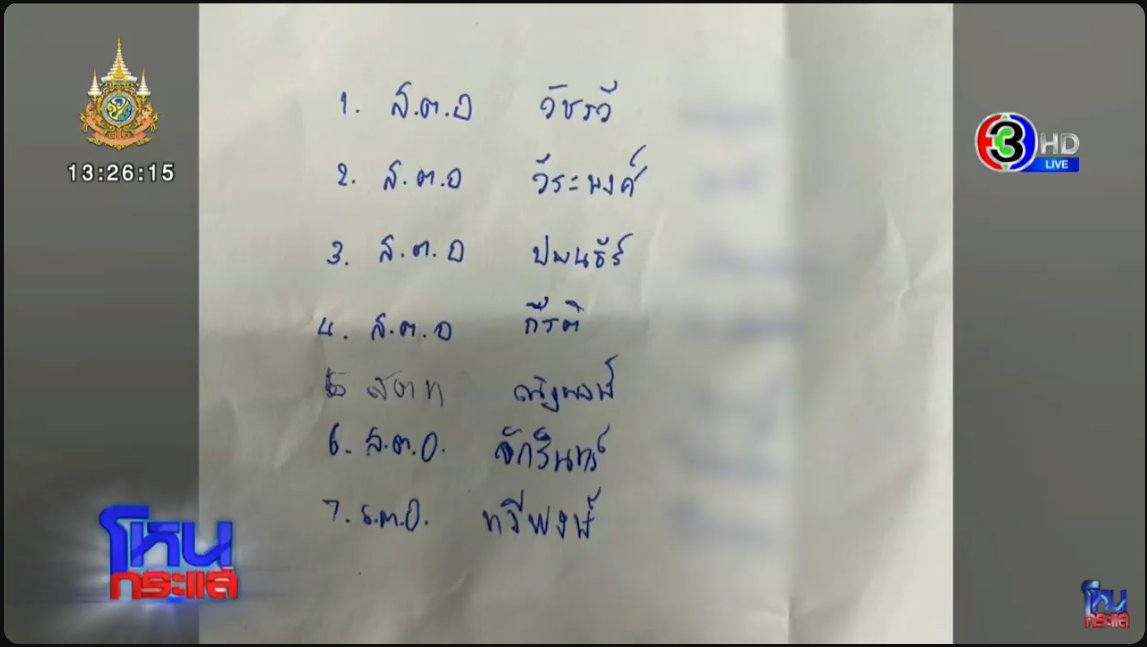 13:26:15
3 HD
LIVE
1. ส.ต.อ วัชรวี
2. ส.ต.อ วีระพงศ์
3. ส.ต.อ ปพนธีร์
4. ส.ต.อ กีรติ
5 สตท
6. ส.ต.อ. จักรินทร์
7. ร.ต.อ. ทวีพงษ์
โหนกระแส
โหนกระแส